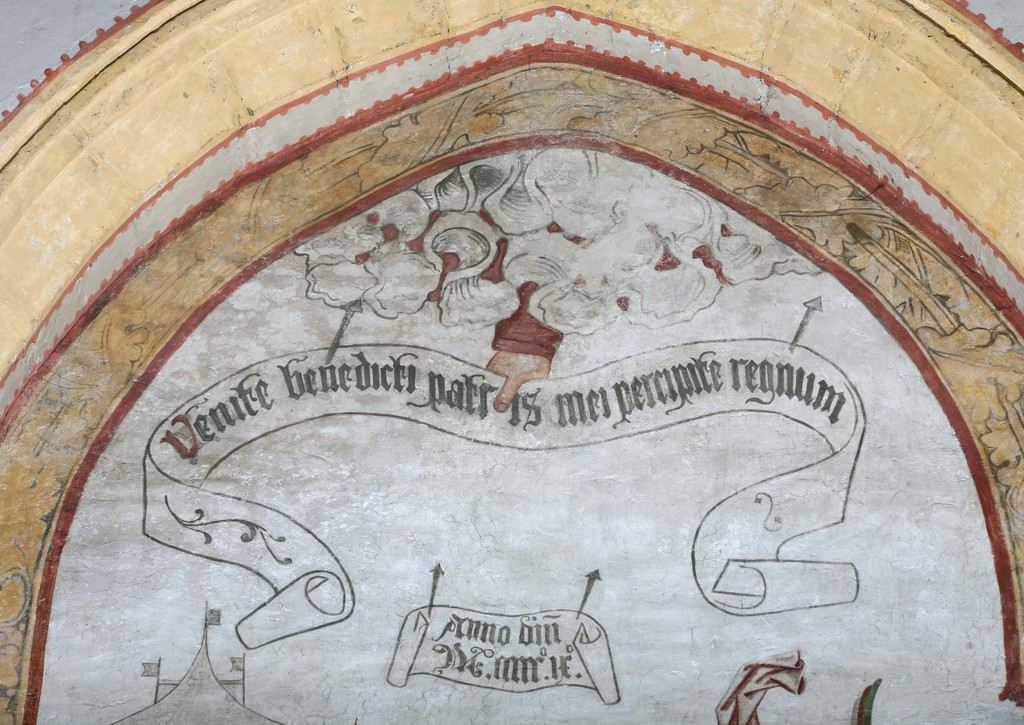 Venite benedicti patris mei percipite regnum
Anno dm̄
M.cccc°.ix°.